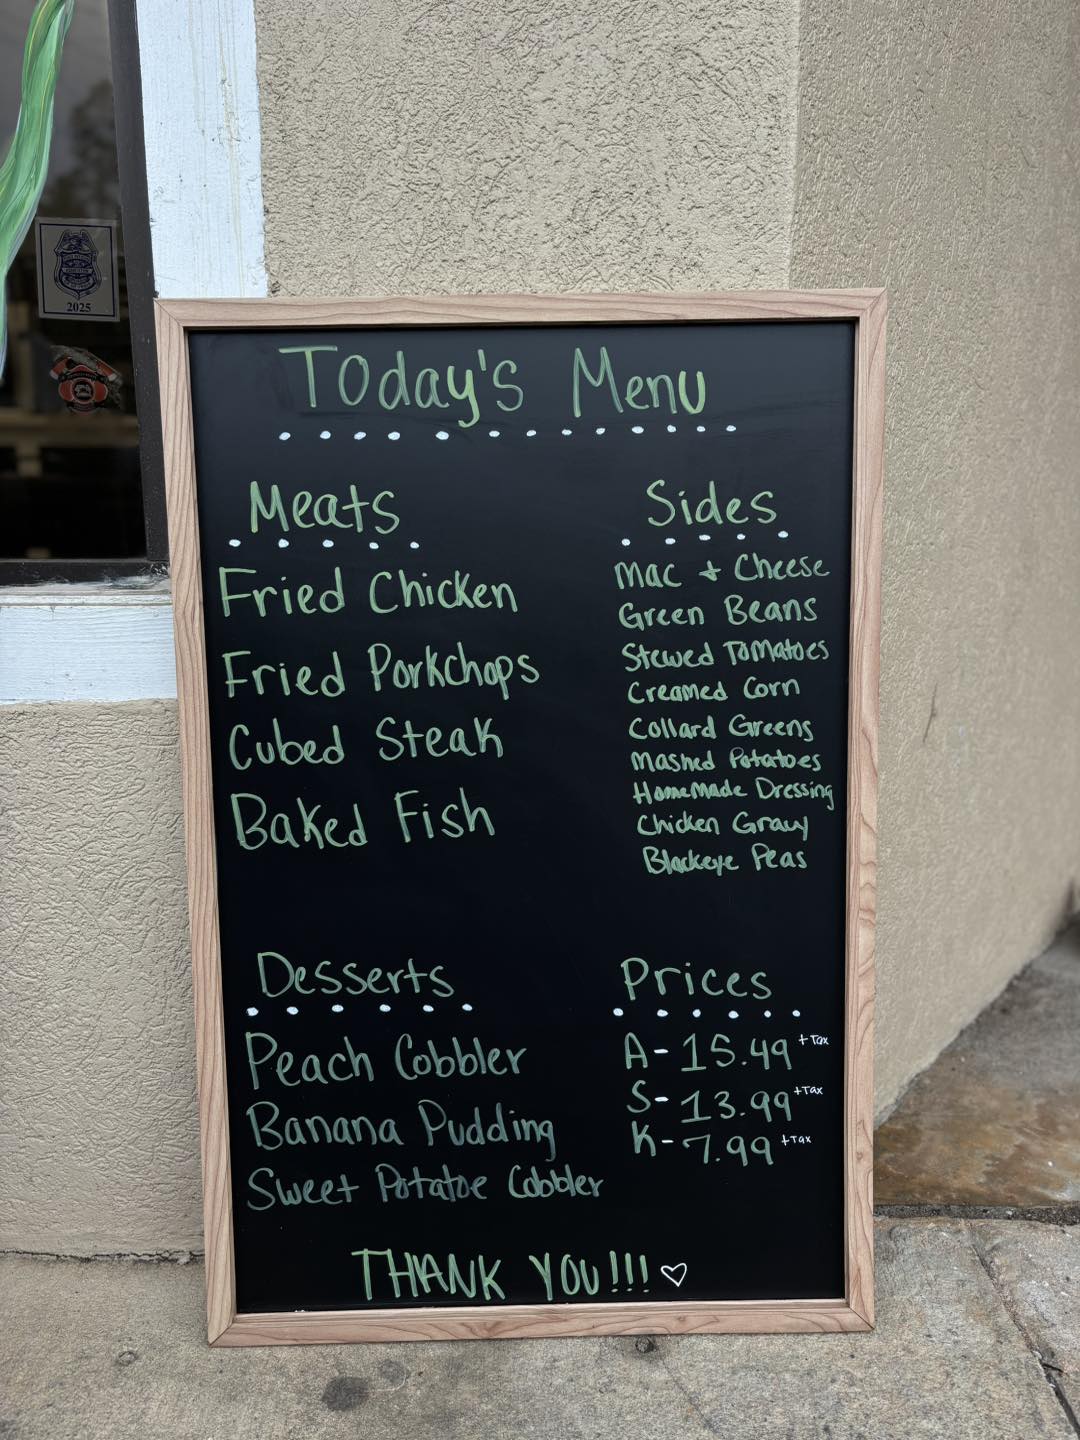 2025
Today's Menu
Meats
Fried Chicken
Fried Porkchops
Cubed Steak
Baked Fish
Sides
Mac + Cheese
Green Beans
Stewed Tomatoes
Creamed Corn
Collard Greens
Mashed Potatoes
Homemade Dressing
Chicken Gravy
Blackeye Peas
Desserts
Peach Cobbler
Banana Pudding
Sweet Potatoe Cobbler
Prices
A - 15.49 + Tax
S - 13.99 + Tax
K - 7.99 + Tax
THANK YOU!!! ♡